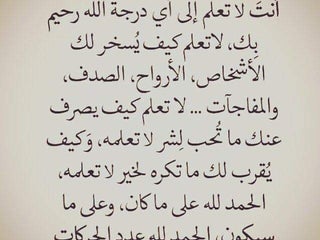 أنتَ لا تعلم إلى أي درجة الله رحيم
بِك، لاتعلم كيف يُسخر لك
الأشخاص، الأرواح، الصدف،
والمفاجآت ... لا تعلم كيف يصرف
عنك ما تُحب لِشر لا تعلمه، وَكيف
يُقرب لك ما تكره لخير لا تعلمه،
الحمد لله على ما كان، وعلى ما
سيكون، الحمد لله عدد الحركات